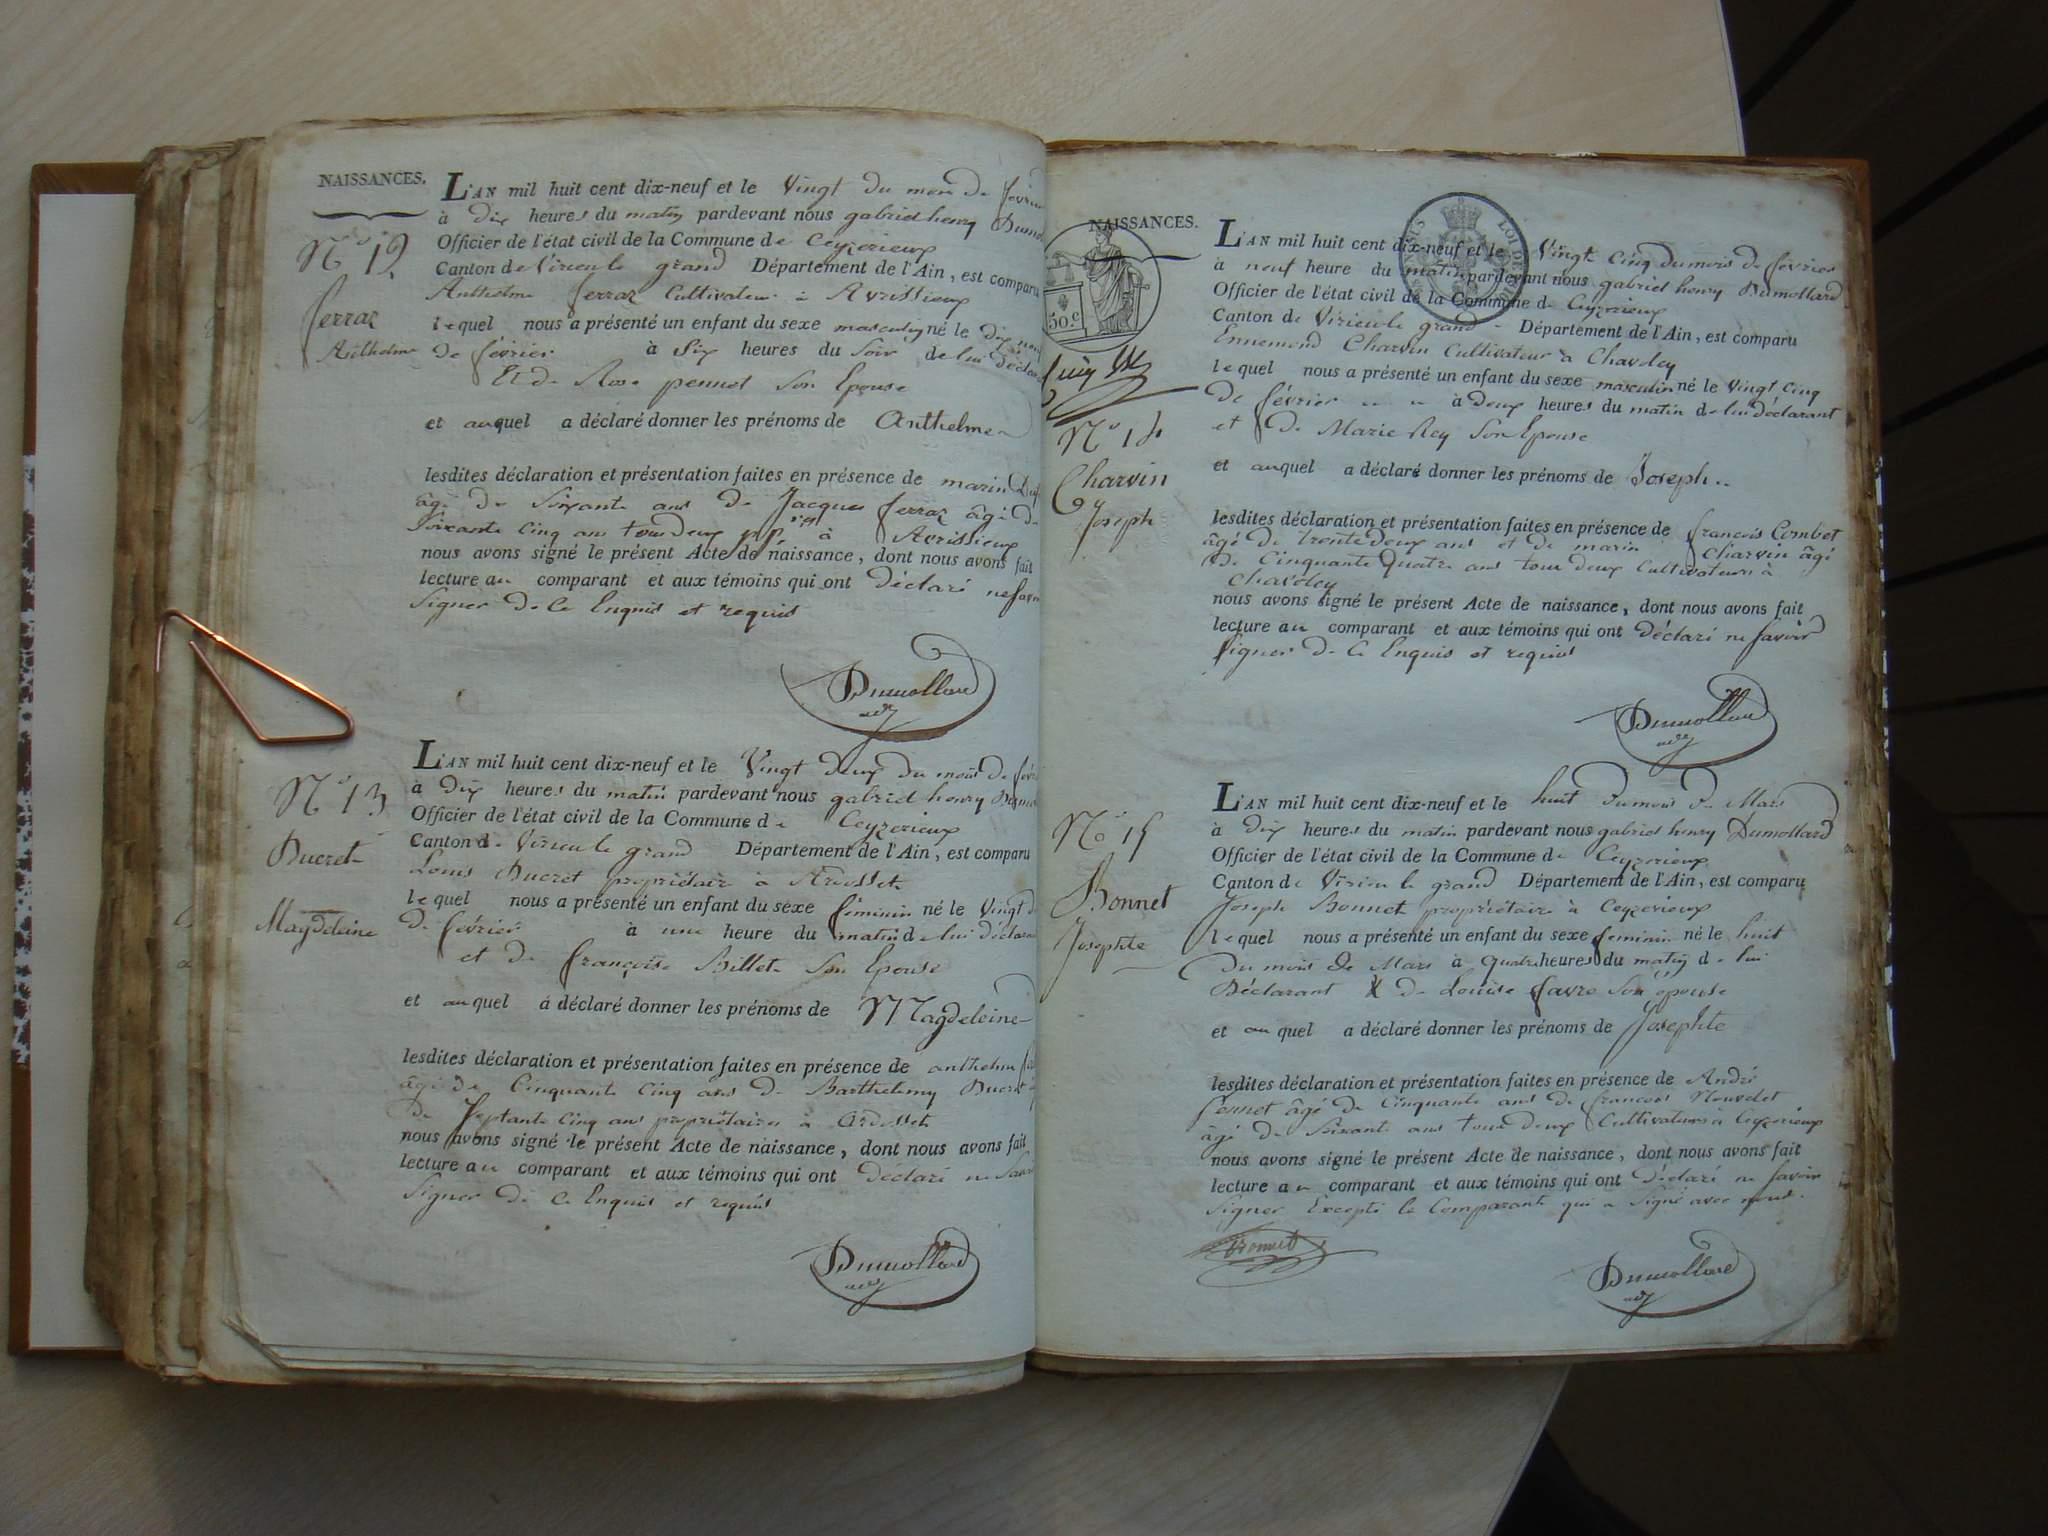 NAISSANCES.
N° 12
ferraz
Anthelme
L'AN mil huit cent dix-neuf et le Vingt du mois de
à dix heures du matin pardevant nous gabriel henry
Officier de l'état civil de la Commune de Ceyzerieux
Canton de Virieu le grand Département de l'Ain, est comparu
Anthelme ferraz Cultivateur à Avrissieux
lequel nous a présenté un enfant du sexe masculin né le dix
de février à Six heures du Soir de lui
Et de Rose pennet Son Epouse
et auquel a déclaré donner les prénoms de Anthelme
lesdites déclaration et présentation faites en présence de marin
âgé de Soixante ans de Jacques ferraz âgé de
Soixante cinq ans tous deux à Avrissieux
nous avons signé le présent Acte de naissance, dont nous avons fait
lecture au comparant et aux témoins qui ont déclaré ne
Signer de Ce Enquis et requis
Dumollard
N° 13
Ducret
Magdeleine
L'AN mil huit cent dix-neuf et le Vingt deux du mois de
à dix heures du matin pardevant nous gabriel henry
Officier de l'état civil de la Commune de Ceyzerieux
Canton de Virieu le grand Département de l'Ain, est comparu
Louis Ducret propriétaire à Ardosset
lequel nous a présenté un enfant du sexe féminin né le Vingt
de février à une heure du matin de lui
et de françoise Billet Son Epouse
et auquel a déclaré donner les prénoms de Magdeleine
lesdites déclaration et présentation faites en présence de anthelme
âgé de Cinquante Cinq ans de Barthelemy Ducret
de Septante Cinq ans propriétaires à ardosset
nous avons signé le présent Acte de naissance, dont nous avons fait
lecture au comparant et aux témoins qui ont déclaré ne
Signer de Ce Enquis et requis
Dumollard
NAISSANCES.
LOI DE
50.c
N° 14
Charvin
Joseph
L'AN mil huit cent dix-neuf et le Vingt Cinq du mois de février
à neuf heure du matin pardevant nous gabriel henry Dumollard
Officier de l'état civil de la Commune de Ceyzerieux
Canton de Virieu le grand Département de l'Ain, est comparu
Ennemond Charvin Cultivateur à Chavoley
lequel nous a présenté un enfant du sexe masculin né le Vingt Cinq
de février à deux heures du matin de lui déclarant
et de Marie Rey Son Epouse
et auquel a déclaré donner les prénoms de Joseph
lesdites déclaration et présentation faites en présence de françois Combet
âgé de trente deux ans et de marin Charvin âgé
de Cinquante Quatre ans tous deux Cultivateurs à
Chavoley
nous avons signé le présent Acte de naissance, dont nous avons fait
lecture au comparant et aux témoins qui ont déclaré ne savoir
Signer de Ce Enquis et requis
Dumollard
N° 15
Bonnet
Josephte
L'AN mil huit cent dix-neuf et le huit du mois de Mars
à dix heures du matin pardevant nous gabriel henry Dumollard
Officier de l'état civil de la Commune de Ceyzerieux
Canton de Virieu le grand Département de l'Ain, est comparu
Joseph Bonnet propriétaire à Ceyzerieux
lequel nous a présenté un enfant du sexe feminin né le huit
du mois de Mars à quatre heures du matin de lui
Déclarant & de Louise favre Son epouse
et auquel a déclaré donner les prénoms de Josephte
lesdites déclaration et présentation faites en présence de André
âgé de Cinquante ans de francois
âgé de Soixante ans tous deux Cultivateurs à Ceyzerieux
nous avons signé le présent Acte de naissance, dont nous avons fait
lecture au comparant et aux témoins qui ont déclaré ne savoir
Signer Excepté le Comparant qui a Signé avec nous.
Bonnet
Dumollard